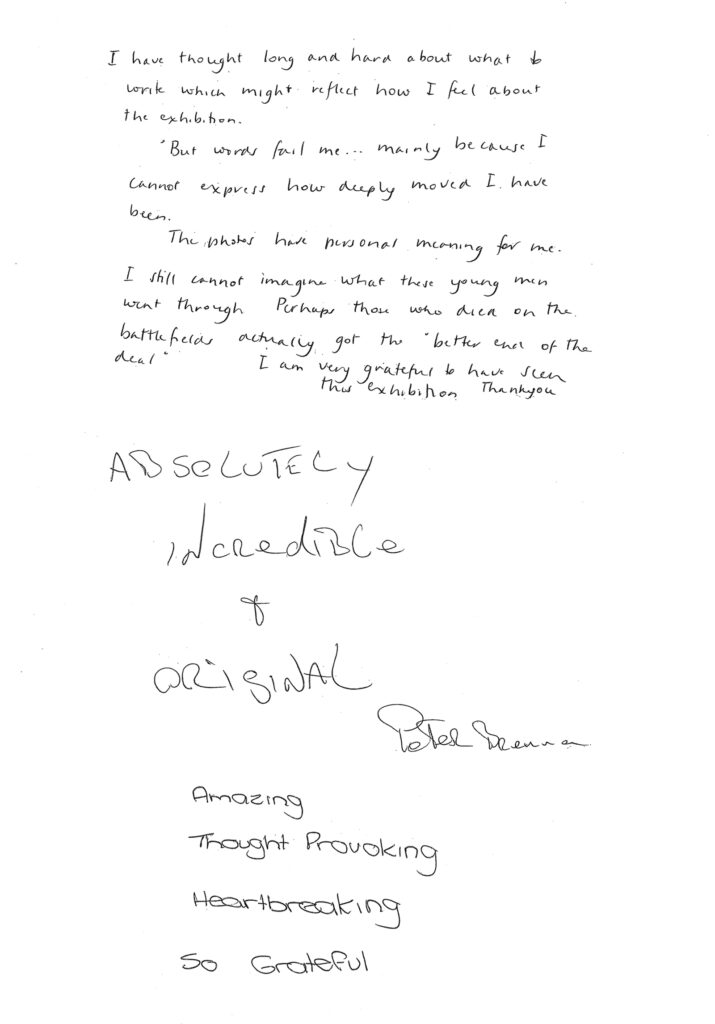 I have thought long and hard about what to
write which might reflect how I feel about
the exhibition.
"But words fail me... mainly because I
cannot express how deeply moved I have
been.
The photos have personal meaning for me.
I still cannot imagine what these young men
went through Perhaps those who died on the
battlefields actually got the "better end of the
deal" I am very grateful to have seen
this exhibition Thankyou
ABSOLUTELY
INCREDIBLE
&
ORIGINAL
Peter Brennan
Amazing
Thought Provoking
Heartbreaking
So Grateful